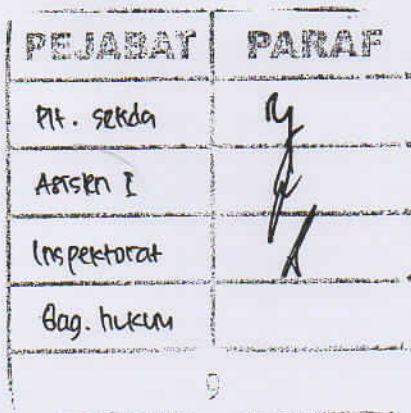 PEJABAT PARAF
Plt. sekda
Asisten I
Inspektorat
Bag. hukum